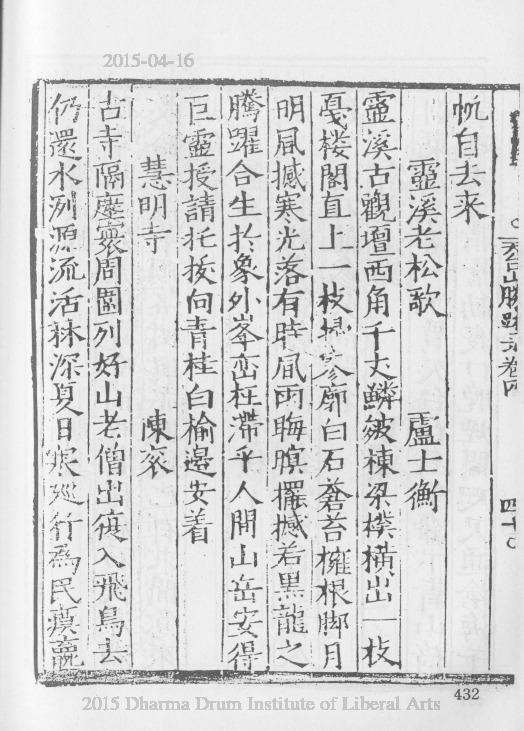 2015-04-16
帆自去来
靈溪老松歌 盧士衡
靈溪古觀壇西角千丈鱗皴棟梁樸橫出一枝
戞楼閣直上一枝掃寥廓白石蒼苔擁根脚月
明風撼寒光落有時風雨晦暝擺撼若黒龍之
騰躍合生扵象外峯巒枉滯乎人間山岳安得
巨靈授請托拔向青桂白榆邊安着
慧明寺 陳袞
古寺隔塵寰周圍列好山老僧出復入飛鳥去
仍還水冽源流活林深夏日寒巡行為民瘼
天台山勝跡录卷四 四十
432
2015 Dharma Drum Institute of Liberal Arts